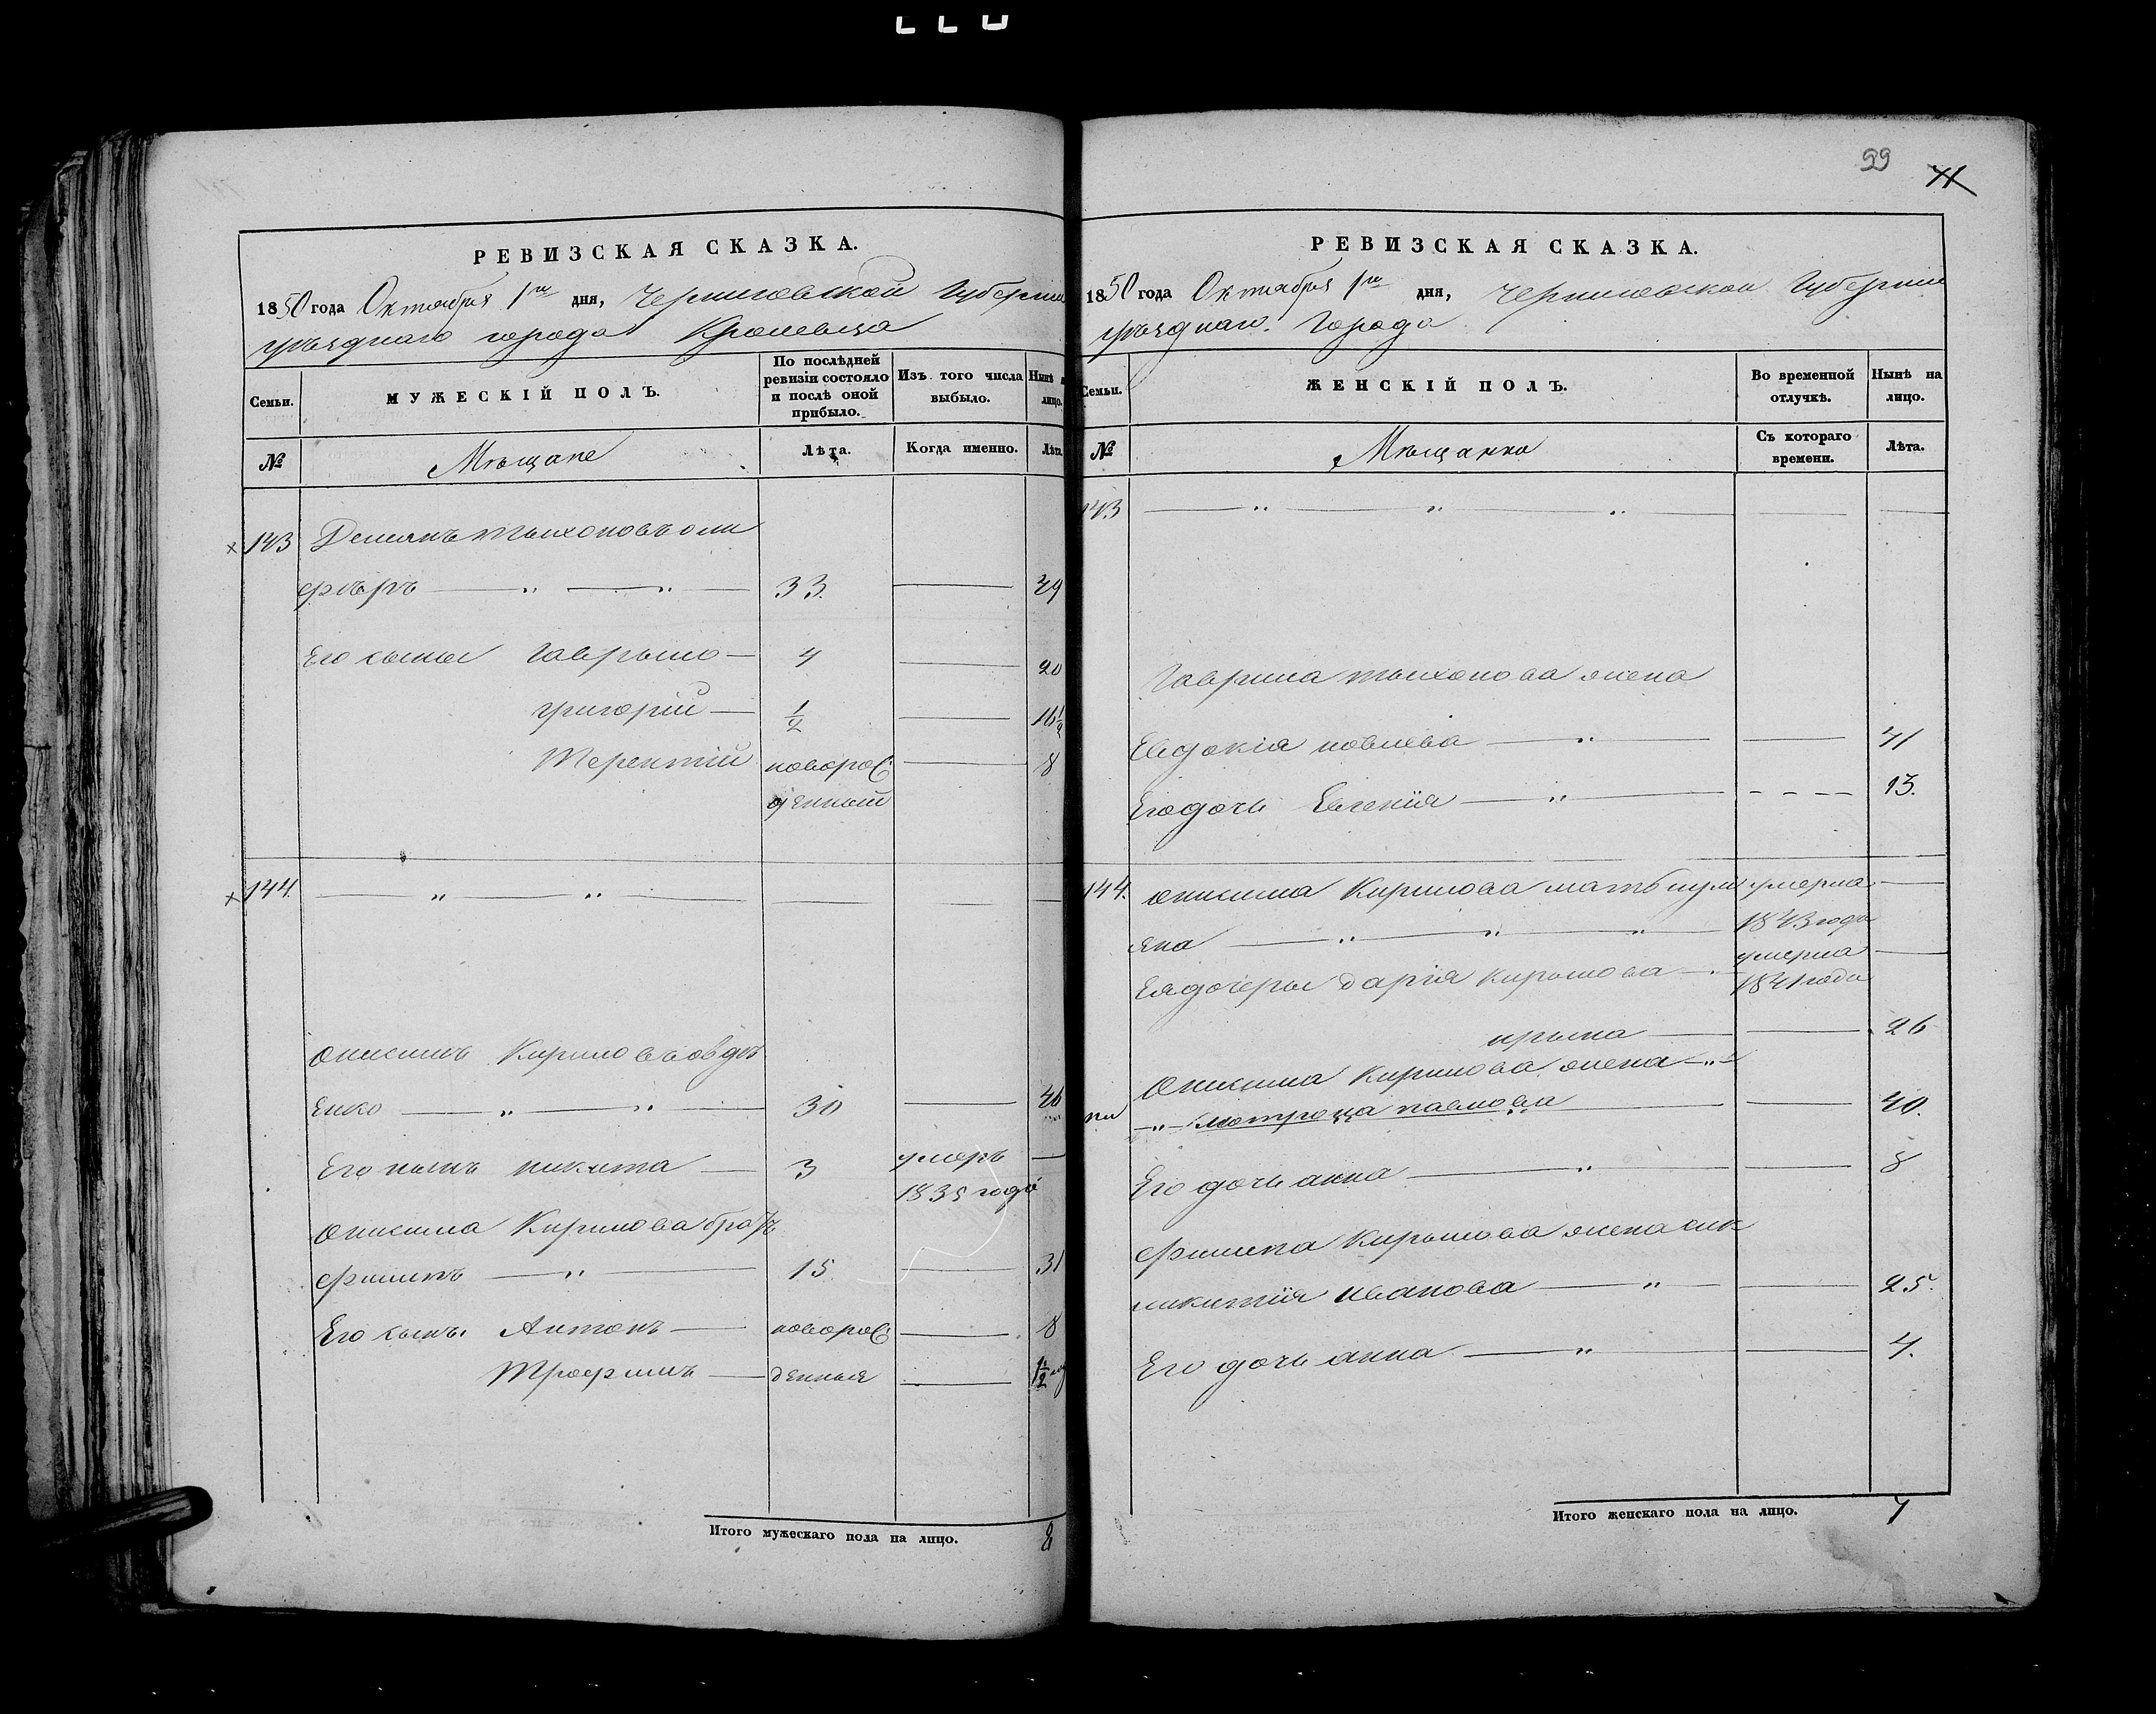 99
71
РЕВИЗСКАЯ СКАЗКА.
1850 года Октября 1го дня, Черниговской Губернии
уѣзднаго города Кролевца
Семьи.
МУЖЕСКІЙ ПОЛЪ.
По послѣдней ревизіи состояло и послѣ оной прибыло.
Изъ того числа выбыло.
Нынѣ на лицо.
№
Мѣщане
Лѣта.
Когда именно.
Лѣта
143 Демянъ Тыхоновъ оли
феръ 33. 49
Его сыны Гаврыло 4 20
Григорій ½ 16½
Терентій новорож 8
денный
144.
Онисимъ Кириловъ овдѣ
енко 30 46
Его сынъ Никита 3 умеръ
1835 года
Онисима Кирилова братъ
Филипъ 15. 31
Его сынъ Антонъ новорож 8
Трофимъ денные 1½
Итого мужескаго пола на лицо. 8
РЕВИЗСКАЯ СКАЗКА.
1850 года Октября 1го дня, Черниговской Губернии
уѣзднаго Города
Семьи.
ЖЕНСКІЙ ПОЛЪ.
Во временной отлучкѣ.
Нынѣ на лицо.
№
Мѣщанки
Съ котораго времени.
Лѣта.
143
Гаврила Тыхонова жена
Евдокія 41
Его дочь Евгенія 13.
144. Онисима Кирилова мать умерла
яна 1843 года
Ея дочеры Дарія Кирылова умерла
1841 года
Ирына 26
Онисима Кирилова жена
Мотрона Павлова 40.
Его дочь Анна 8
Филипа Кирылова жена
Иванова 25.
Его дочь Анна 4.
Итого женскаго пола на лицо. 7